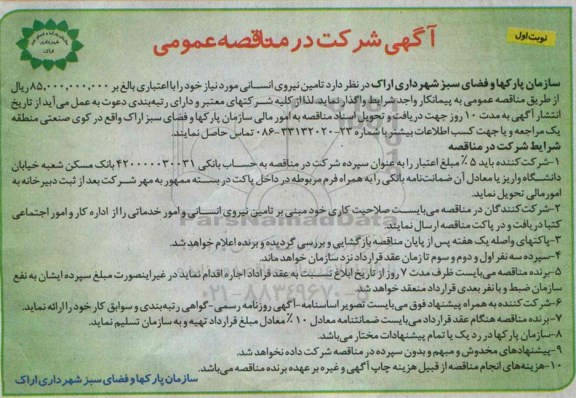 نوبت اول
آگهی شرکت در مناقصه عمومی
سازمان پارکها و فضای سبز شهرداری اراک در نظر دارد تامین نیروی انسانی مورد نیاز خود را با اعتباری بالغ بر ۸۵,۰۰۰,۰۰۰,۰۰۰ ریال
از طریق مناقصه عمومی به پیمانکار واجد شرایط واگذار نماید لذا از کلیه شرکتهای معتبر و دارای رتبه‌بندی دعوت به عمل می‌آید از تاریخ
انتشار آگهی به مدت ۱۰ روز جهت دریافت و تحویل اسناد مناقصه به امور مالی سازمان پارکها و فضای سبز اراک واقع در کوی صنعتی منطقه
یک مراجعه و یا جهت کسب اطلاعات بیشتر با شماره ۲۳-۳۳۱۳۲۰۲۰-۰۸۶ تماس حاصل نمایند.
شرایط شرکت در مناقصه
۱-شرکت‌کننده باید ۵٪ مبلغ اعتبار را به عنوان سپرده شرکت در مناقصه به حساب بانکی ۴۲۰۰۰۰۰۳۰۰۳۱ بانک مسکن شعبه خیابان
دانشگاه واریز یا معادل آن ضمانت‌نامه بانکی را به همراه فرم مربوطه در داخل پاکت در بسته ممهور به مهر شرکت بعد از ثبت دبیرخانه به
امور مالی تحویل نماید.
۲-شرکت‌کنندگان در مناقصه می‌بایست صلاحیت کاری خود مبنی بر تامین نیروی انسانی و امور خدماتی را از اداره کار و امور اجتماعی
کتبا دریافت و در پاکت مناقصه ارسال نمایند.
۳-پاکتهای واصله یک هفته پس از پایان مناقصه بازگشایی و بررسی گردیده و برنده اعلام خواهد شد.
۴-سپرده سه نفر اول و دوم و سوم تا زمان عقد قرارداد نزد سازمان خواهد ماند.
۵-برنده مناقصه می‌بایست ظرف مدت ۷ روز از تاریخ ابلاغ نسبت به عقد قراداد اجاره اقدام نماید در غیراینصورت مبلغ سپرده ایشان به نفع
سازمان ضبط و با نفر بعدی قرارداد منعقد خواهد شد.
۶-شرکت‌کننده به همراه پیشنهاد فوق می‌بایست تصویر اساسنامه-آگهی روزنامه رسمی-گواهی رتبه‌بندی و سوابق کار خود را ارائه نماید.
۷-برنده مناقصه هنگام عقد قرارداد می‌بایست ضمانتنامه معادل ۱۰٪ معادل مبلغ قرارداد تهیه و به سازمان تسلیم نماید.
۸-سازمان پارکها در رد یک یا تمام پیشنهادات مختار می‌باشد.
۹-پیشنهادهای مخدوش و مبهم و بدون سپرده در مناقصه شرکت داده نخواهد شد.
۱۰-هزینه‌های انجام مناقصه از قبیل هزینه چاپ آگهی و غیره بر عهده برنده مناقصه می‌باشد.
سازمان پارکها و فضای سبز شهرداری اراک
ParsNamadData
۰۲۱-۸۸۳۴۹۶۷۰